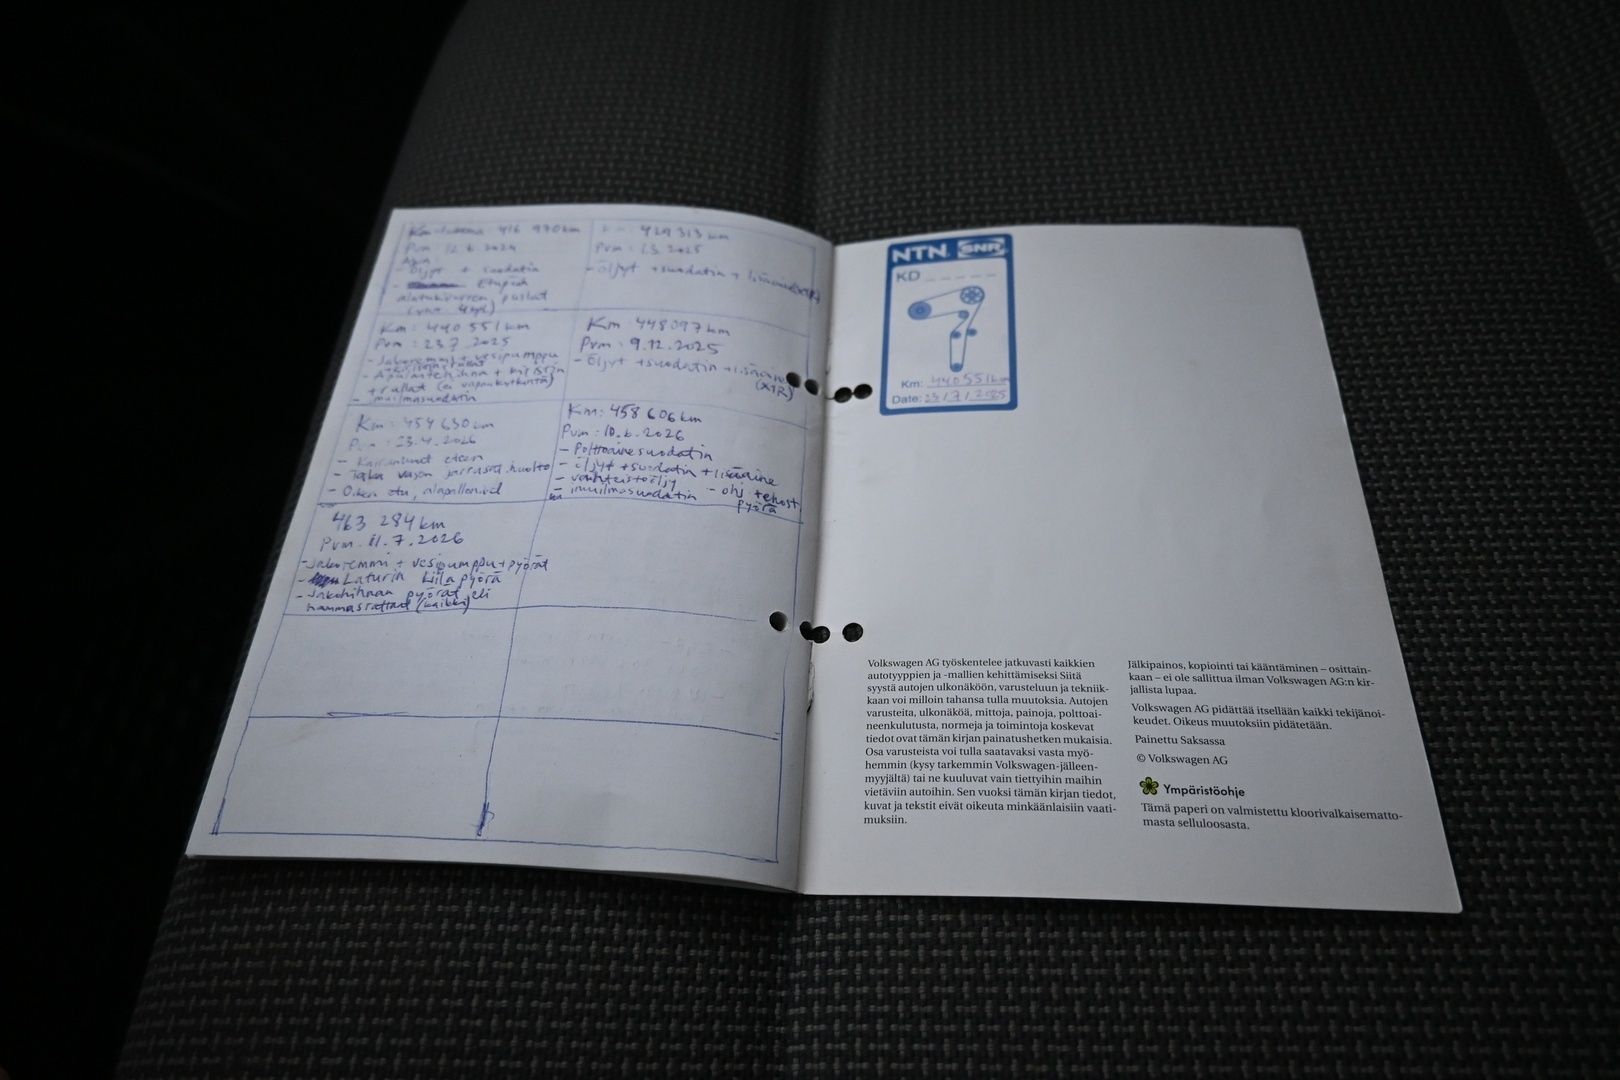 416 970 km
Pvm : 12.6.2024
- Öljyt + suodatin
- Etupään
alatukivarren puslat
429 313 km
Pvm : 1.3.2025
- Öljyt + suodatin + lisäaine (XTR)
Km : 440 551 km
Pvm : 23.7.2025
- Jakoremmi + vesipumppu
- Apulaitehihna + kiristin
+ rullat (ei vapaakytkintä)
- ilmansuodatin
Km : 448 097 km
Pvm : 9.12.2025
- Öljyt + suodatin + lisäaine
(XTR)
Km : 454 630 km
Pvm : 23.4.2026
- Koiranluut eteen
- Taka vasen jarrusat. huolto
- Oikea etu, alapallonivel
Km : 458 606 km
Pvm : 10.6.2026
- Polttoainesuodatin
- öljyt + suodatin + lisäaine
- vaihteistoöljy
- ilmansuodatin - ohj. tehost.
pyörä
463 284 km
Pvm. 11.7.2026
- Jakoremmi + vesipumppu + pyörät
- Laturin kiilapyörä
- Jakohihnan pyörät eli
hammasrattaat (kaikki)
NTN. SNR
KD _ _ _ _ _
Km: 440 551 km
Date: 23 / 7 / 2025
Volkswagen AG työskentelee jatkuvasti kaikkien
autotyyppien ja -mallien kehittämiseksi Siitä
syystä autojen ulkonäköön, varusteluun ja tekniik-
kaan voi milloin tahansa tulla muutoksia. Autojen
varusteita, ulkonäköä, mittoja, painoja, polttoai-
neenkulutusta, normeja ja toimintoja koskevat
tiedot ovat tämän kirjan painatushetken mukaisia.
Osa varusteista voi tulla saatavaksi vasta myö-
hemmin (kysy tarkemmin Volkswagen-jälleen-
myyjältä) tai ne kuuluvat vain tiettyihin maihin
vietäviin autoihin. Sen vuoksi tämän kirjan tiedot,
kuvat ja tekstit eivät oikeuta minkäänlaisiin vaati-
muksiin.
Jälkipainos, kopiointi tai kääntäminen – osittain-
kaan – ei ole sallittua ilman Volkswagen AG:n kir-
jallista lupaa.
Volkswagen AG pidättää itsellään kaikki tekijänoi-
keudet. Oikeus muutoksiin pidätetään.
Painettu Saksassa
© Volkswagen AG
Ympäristöohje
Tämä paperi on valmistettu kloorivalkaisematto-
masta selluloosasta.